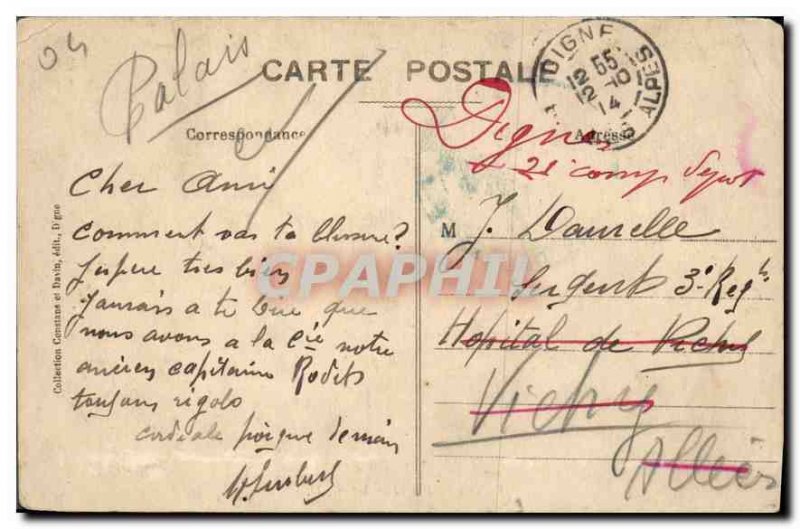 04
Palais
CARTE POSTALE
DIGNE
12 55
12 - 10
14
ALPES
Correspondance
Adresse
Digne
2è comp Depot
Cher Ami
Comment vas ta blessure?
J'espere tres bien
J'aurais a te dire que
nous avons a la Cie notre
ancien capitaine Rodits
toujours rigolo
cordiale poigne de main
M J. Daurelle
Sergent 3e Reg
Hopital de Vichy
Vichy
Allier
Collection Constans et Davin, édit., Digne
CPAPHIL